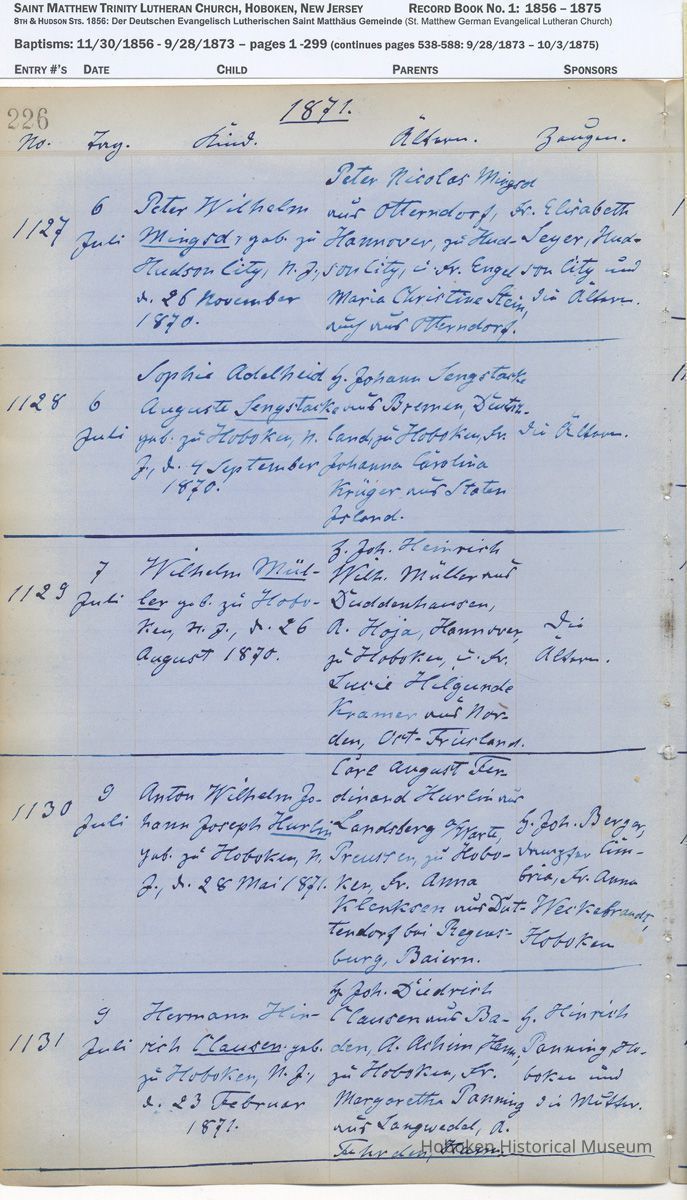 SAINT MATTHEW TRINITY LUTHERAN CHURCH, HOBOKEN, NEW JERSEY RECORD BOOK NO. 1: 1856 – 1875
8TH & HUDSON STS. 1856: Der Deutschen Evangelisch Lutherischen Saint Matthäus Gemeinde (St. Matthew German Evangelical Lutheran Church)
Baptisms: 11/30/1856 - 9/28/1873 – pages 1 -299 (continues pages 538-588: 9/28/1873 – 10/3/1875)
ENTRY #'S DATE CHILD PARENTS SPONSORS
226
1871.
No. Tag. Kind. Ältern. Zeugen.
1127
6
Juli
Peter Wilhelm
Mingsd, geb. zu
Hudson City, N. J.,
d. 26 November
1870.
Peter Nicolas Mingsd
aus Otterndorf,
Hannover, zu Hud-
son City, u. Fr. Engel
Maria Christine Stein,
auch aus Otterndorf.
Fr. Elisabeth
Seyer, Hud-
son City und
die Ältern.
1128
6
Juli
Sophie Adelheid
Auguste Sengstacke
geb. zu Hoboken, N.
J., d. 4 September
1870.
H. Johann Sengstacke
aus Bremen, Deutsch-
land, zu Hoboken, Fr.
Johanna Carolina
Krüger aus Staten
Island.
die Ältern.
1129
7
Juli
Wilhelm Mül-
ler geb. zu Hobo-
ken, N. J., d. 26
August 1870.
H. Joh. Heinrich
Wilh. Müller aus
Duddenhausen,
A. Hoja, Hannover
zu Hoboken, u. Fr.
Lucie Helgunde
Kramer aus Nor-
den, Ost-Friesland.
Die
Ältern.
1130
9
Juli
Anton Wilhelm Jo-
hann Joseph Hurlin
geb. zu Hoboken, N.
J., d. 28 Mai 1871.
Carl August Fer-
dinand Hurlin aus
Landsberg a/Warte,
Preussen, zu Hobo-
ken, Fr. Anna
Klenksen aus Dut-
tendorf bei Regens-
burg, Baiern.
H. Joh. Berger,
Dampfer Cim-
bria, Fr. Anna
Weikebrandt,
Hoboken
1131
9
Juli
Hermann Hin-
rich Clausen geb.
zu Hoboken, N. J.,
d. 23 Februar
1871.
H. Joh. Diedrich
Clausen aus Ba-
den, A. Achim Hann,
zu Hoboken, Fr.
Margaretha Panning
aus Langwedel, A.
Fehrden, Hann.
H. Hinrich
Panning, Ho-
boken und
die Mutter.
Hoboken Historical Museum